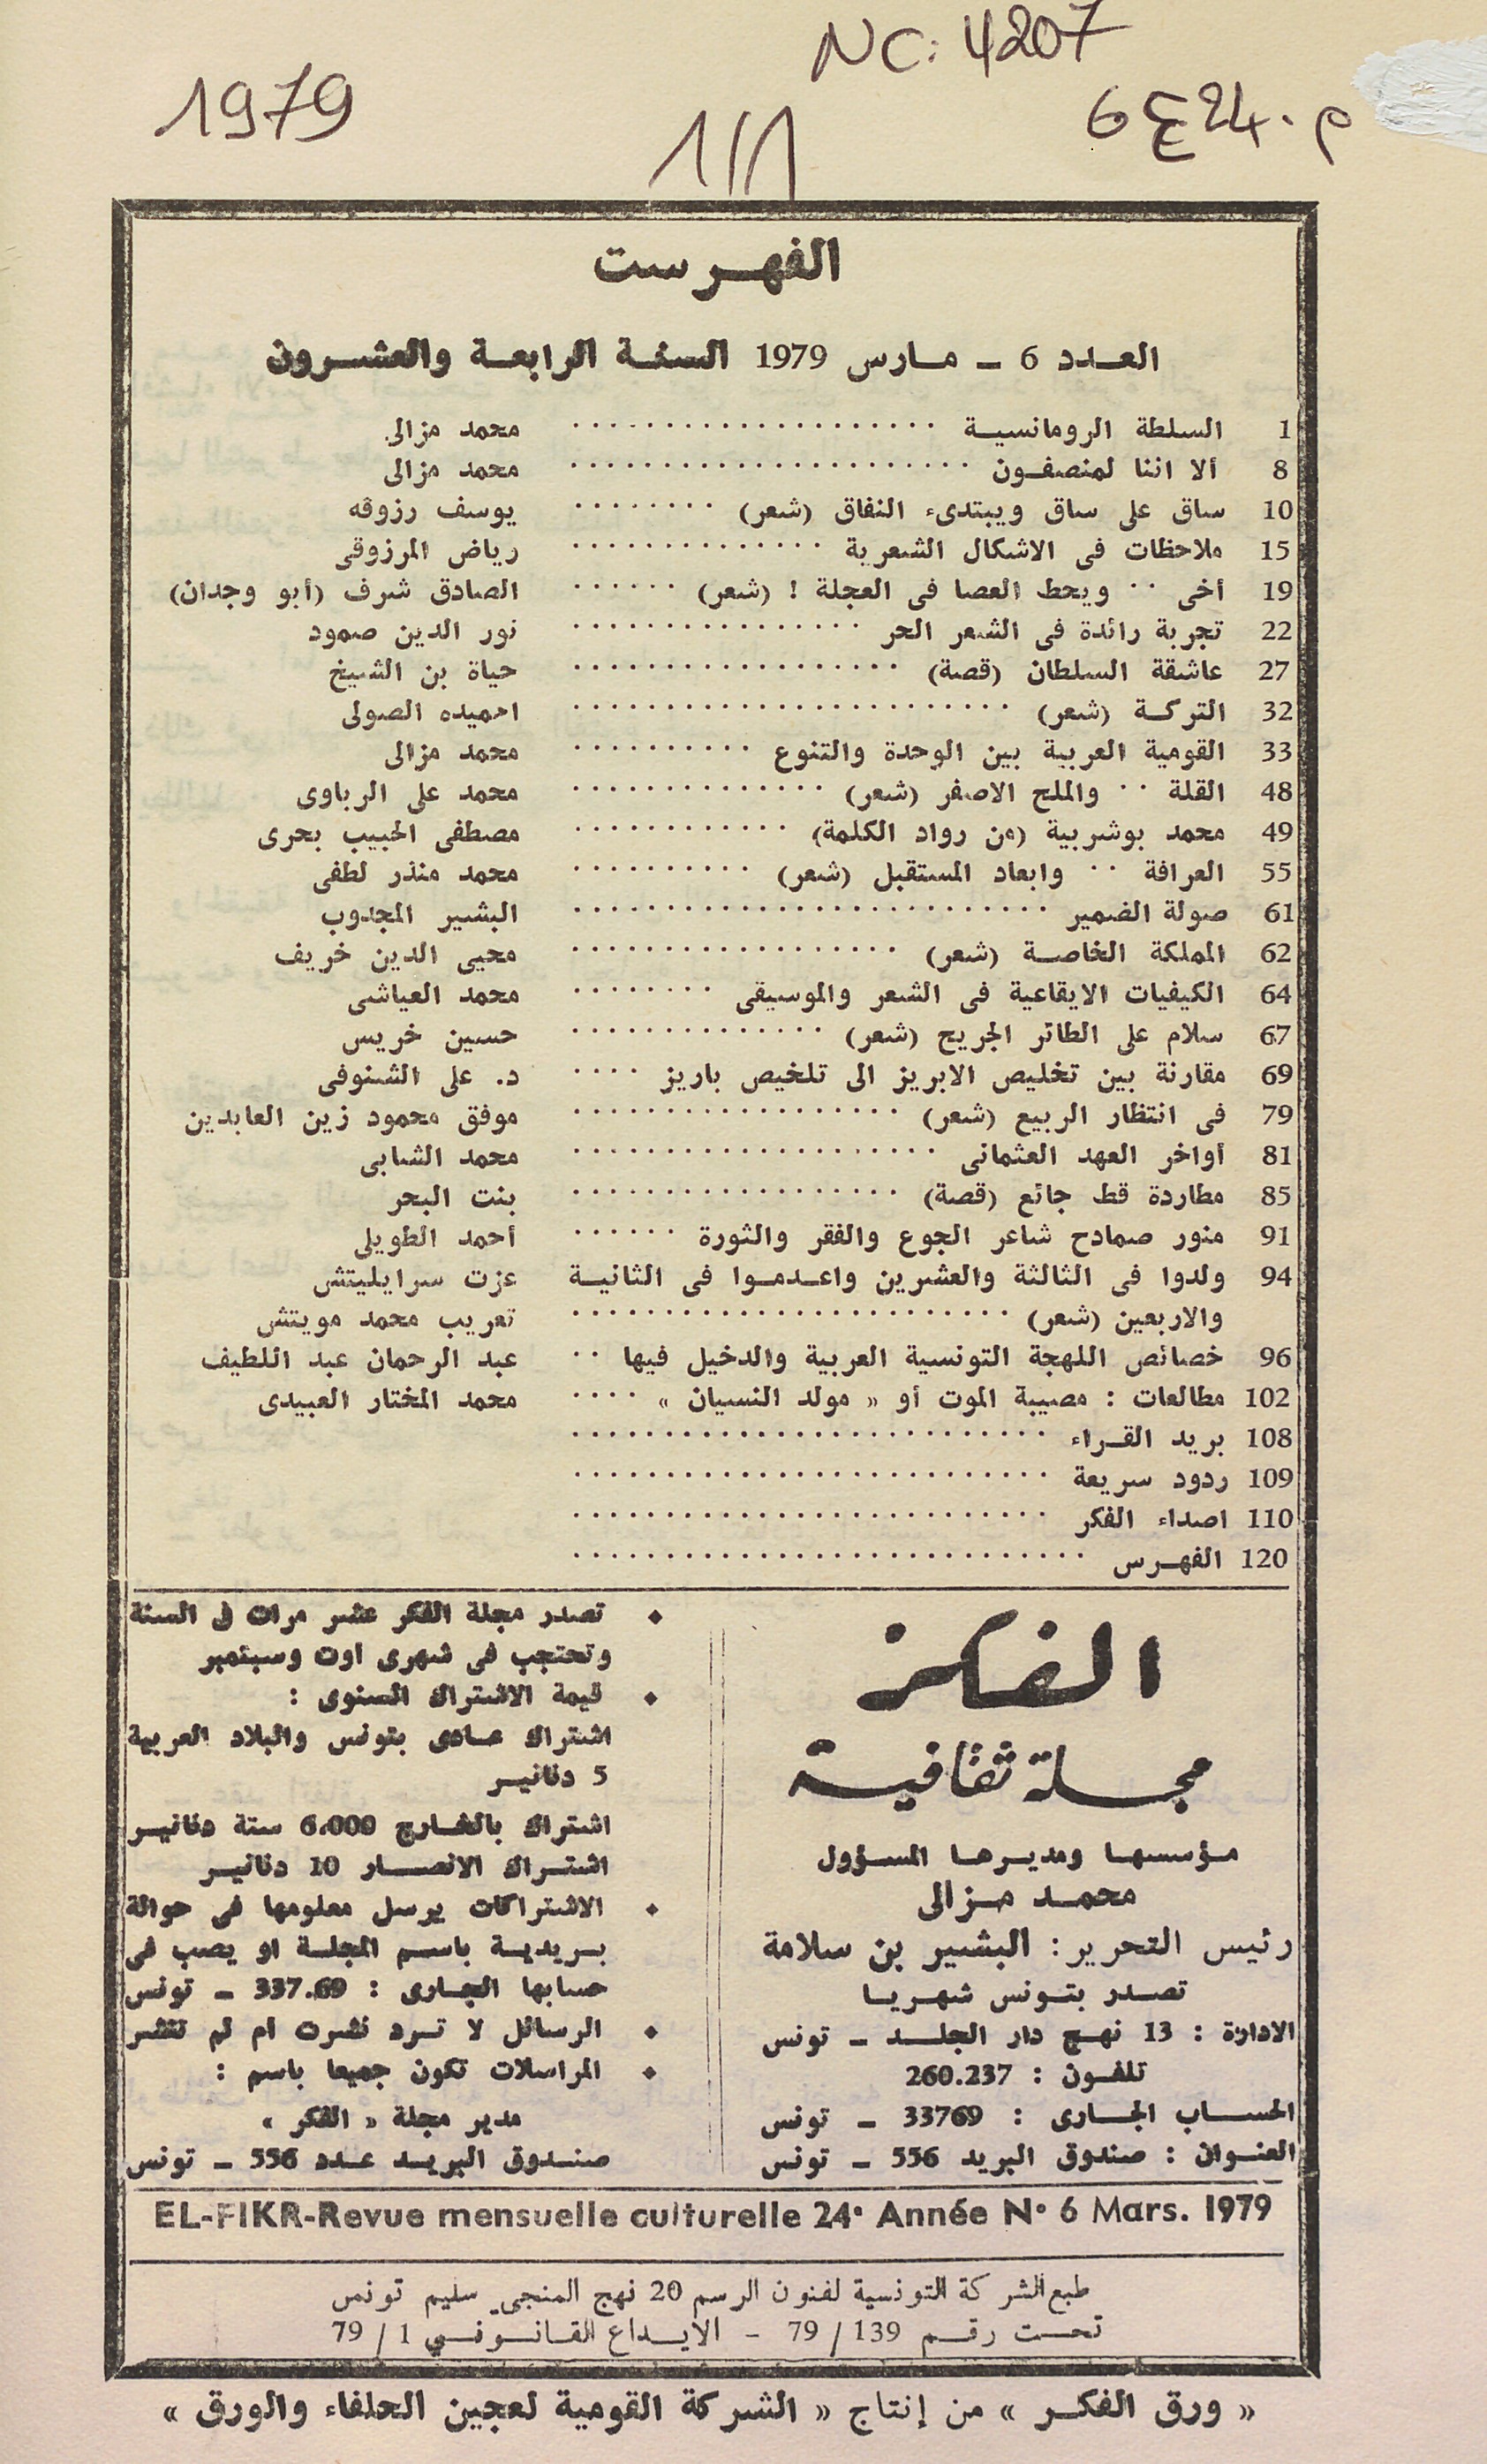 NC: 4207
1979
6 ع 24 . م
1/1
الفهرست
العدد 6 ـ مارس 1979 السنة الرابعة والعشرون
1 السلطة الرومانسية .................... محمد مزالى
8 ألا اننا لمنصفون ...................... محمد مزالى
10 ساق على ساق ويبتدىء النفاق (شعر) ........ يوسف رزوقه
15 ملاحظات فى الاشكال الشعرية .............. رياض المرزوقى
19 أخى .. ويحط العصا فى العجلة ! (شعر) ...... الصادق شرف (أبو وجدان)
22 تجربة رائدة فى الشعر الحر ................ نور الدين صمود
27 عاشقة السلطان (قصة) .................. حياة بن الشيخ
32 التركة (شعر) ........................ احميده الصولى
33 القومية العربية بين الوحدة والتنوع .......... محمد مزالى
48 القلة .. والملح الاصفر (شعر) .............. محمد على الرباوى
49 محمد بوشربية (من رواد الكلمة) ............ مصطفى الحبيب بحرى
55 العرافة .. وابعاد المستقبل (شعر) .......... محمد منذر لطفى
61 صولة الضمير .......................... البشير المجدوب
62 المملكة الخاصة (شعر) .................. محيى الدين خريف
64 الكيفيات الايقاعية فى الشعر والموسيقى ........ محمد العياشى
67 سلام على الطائر الجريح (شعر) .............. حسين خريس
69 مقارنة بين تخليص الابريز الى تلخيص باريز .... د. على الشنوفى
79 فى انتظار الربيع (شعر) .................. موفق محمود زين العابدين
81 أواخر العهد العثمانى .................... محمد الشابى
85 مطاردة قط جائع (قصة) .................. بنت البحر
91 منور صمادح شاعر الجوع والفقر والثورة ...... أحمد الطويلى
94 ولدوا فى الثالثة والعشرين واعدموا فى الثانية عزت سرايليتش
والاربعين (شعر) ........................ تعريب محمد مويتش
96 خصائص اللهجة التونسية العربية والدخيل فيها .. عبد الرحمان عبد اللطيف
102 مطالعات : مصيبة الموت أو « مولد النسيان » .... محمد المختار العبيدى
108 بريد القراء ..........................
109 ردود سريعة ..........................
110 اصداء الفكر ..........................
120 الفهرس ............................
الفكر
مجلة ثقافية
مؤسسها ومديرها المسؤول
محمد مزالى
رئيس التحرير : البشير بن سلامة
تصدر بتونس شهريا
الادارة : 13 نهج دار الجلد ـ تونس
تلفون : 260.237
الحساب الجارى : 33769 ـ تونس
العنوان : صندوق البريد 556 ـ تونس
♦ تصدر مجلة الفكر عشر مرات فى السنة
وتحتجب فى شهرى اوت وسبتمبر
♦ قيمة الاشتراك السنوى :
اشتراك عادى بتونس والبلاد العربية
5 دنانير
اشتراك بالخارج 6،000 ستة دنانير
اشتراك الانصار 10 دنانير
♦ الاشتراكات يرسل معلومها فى حوالة
بريدية باسم المجلة او يصب فى
حسابها الجارى : 337.69 ـ تونس
♦ الرسائل لا ترد نشرت ام لم تنشر
♦ المراسلات تكون جميعا باسم :
مدير مجلة « الفكر »
صندوق البريد عدد 556 ـ تونس
EL-FIKR-Revue mensuelle culturelle 24e Année N° 6 Mars. 1979
طبع الشركة التونسية لفنون الرسم 20 نهج المنجي سليم تونس
تحت رقم 139 / 79 - الايداع القانوني 1 / 79
« ورق الفكر » من إنتاج « الشركة القومية لعجين الحلفاء والورق »